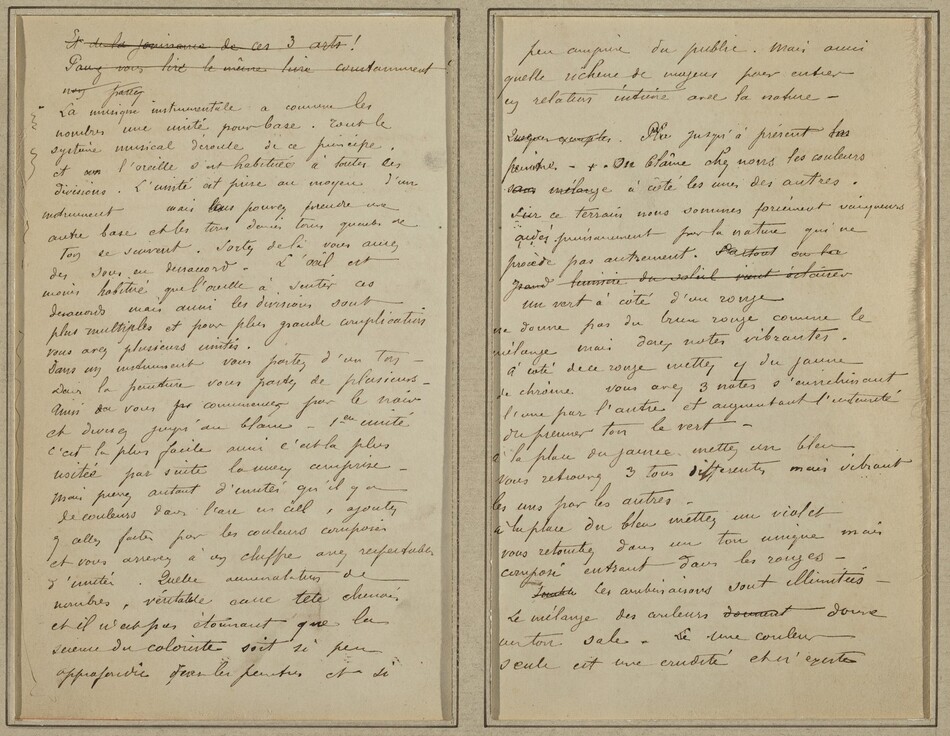 Et de la jouissance de ces 3 arts!
vous lire le même livre constamment
La musique instrumentale a comme les
nombres une unité pour base. Tout le
système musical découle de ce principe.
et l'oreille s'est habituée à toutes ces
divisions. L'unité est prise au moyen d'un
instrument mais vous pouvez prendre une
autre base et les tons demis tons quarts de
ton se suivent. Sortez de là vous aurez
des sons en désaccord. L'œil est
moins habitué que l'oreille à sentir ces
désacords mais aussi les divisions sont
plus multiples et pour plus grande complication
vous avez plusieurs unités.
Dans un instrument vous partez d'un ton —
Dans la peinture vous partez de plusieurs —
Ainsi vous commencez par le noir
et divisez jusqu'au blanc — 1ère unité
c'est la plus facile aussi c'est la plus
usitée par suite la mieux comprise —
Mais prenez autant d'unités qu'il y a
de couleurs dans l'arc en ciel, ajoutez
y celles faites par les couleurs composées
et vous arrivez à un chiffre assez respectable
d'unités. Quelle accumulation de
nombres, véritable casse tête chinois
et il n'est pas étonnant que la
science du coloriste soit si peu
approfondie par les peintres et si
peu comprise du public. Mais aussi
quelle richesse de moyens pour entrer
en relation intime avec la nature —
jusqu'à présent
peintre. On blâme chez nous les couleurs
sans mélange à côté les unes des autres.
Sur ce terrain nous sommes forcément vainqueurs
aidés puissamment par la nature qui ne
procède pas autrement. Partout où la
grand lumière du soleil vient éclairer
un vert à côté d'un rouge
ne donne pas du brun rouge comme le
mélange mais deux notes vibrantes.
A côté de ce rouge mettez y du jaune
de chrôme vous avez 3 notes s'enrichissant
l'une par l'autre et augmentant l'intensité
du premier ton le vert —
à la place du jaune mettez un bleu
vous retrouvez 3 tons différents mais vibrant
les uns par les autres —
à la place du bleu mettez un violet
vous retombez dans un ton unique mais
composé entrant dans les rouges —
Les combinaisons sont illimitées —
Le mélange des couleurs donnent donne
un ton sale. Une couleur
seule est une crudité et n'existe